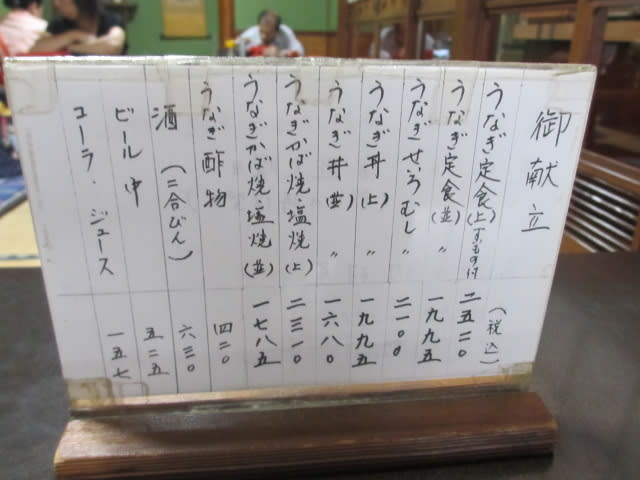 御献立
(税込)
うなぎ定食(上)すいもの付 二五二〇
うなぎ定食(並) 〃 一九九五
うなぎせいろむし 〃 二一〇〇
うなぎ丼(上) 〃 一九九五
うなぎ丼(並) 〃 一六八〇
うなぎかば焼・塩焼(上) 二三一〇
うなぎかば焼・塩焼(並) 一七八五
うなぎ酢物 四二〇
酒(二合びん) 六三〇
ビール中 五二五
コーラ・ジュース 一五七